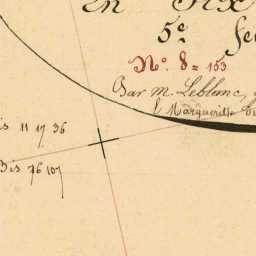 en
5e
No. 8 = 153
Par M. Leblanc,
Marguerite
is 11 17 36
Bis 76 107